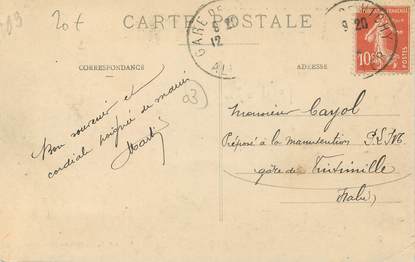 20f
CARTE POSTALE
GARE DE
9 20
12
9 20
10
POSTES
CORRESPONDANCE
ADRESSE
03
Bon souvenir et
cordiale poignée de main
Monsieur Cayol
Préposé à la manutention P.L.M.
gare de Vintimille
Italie